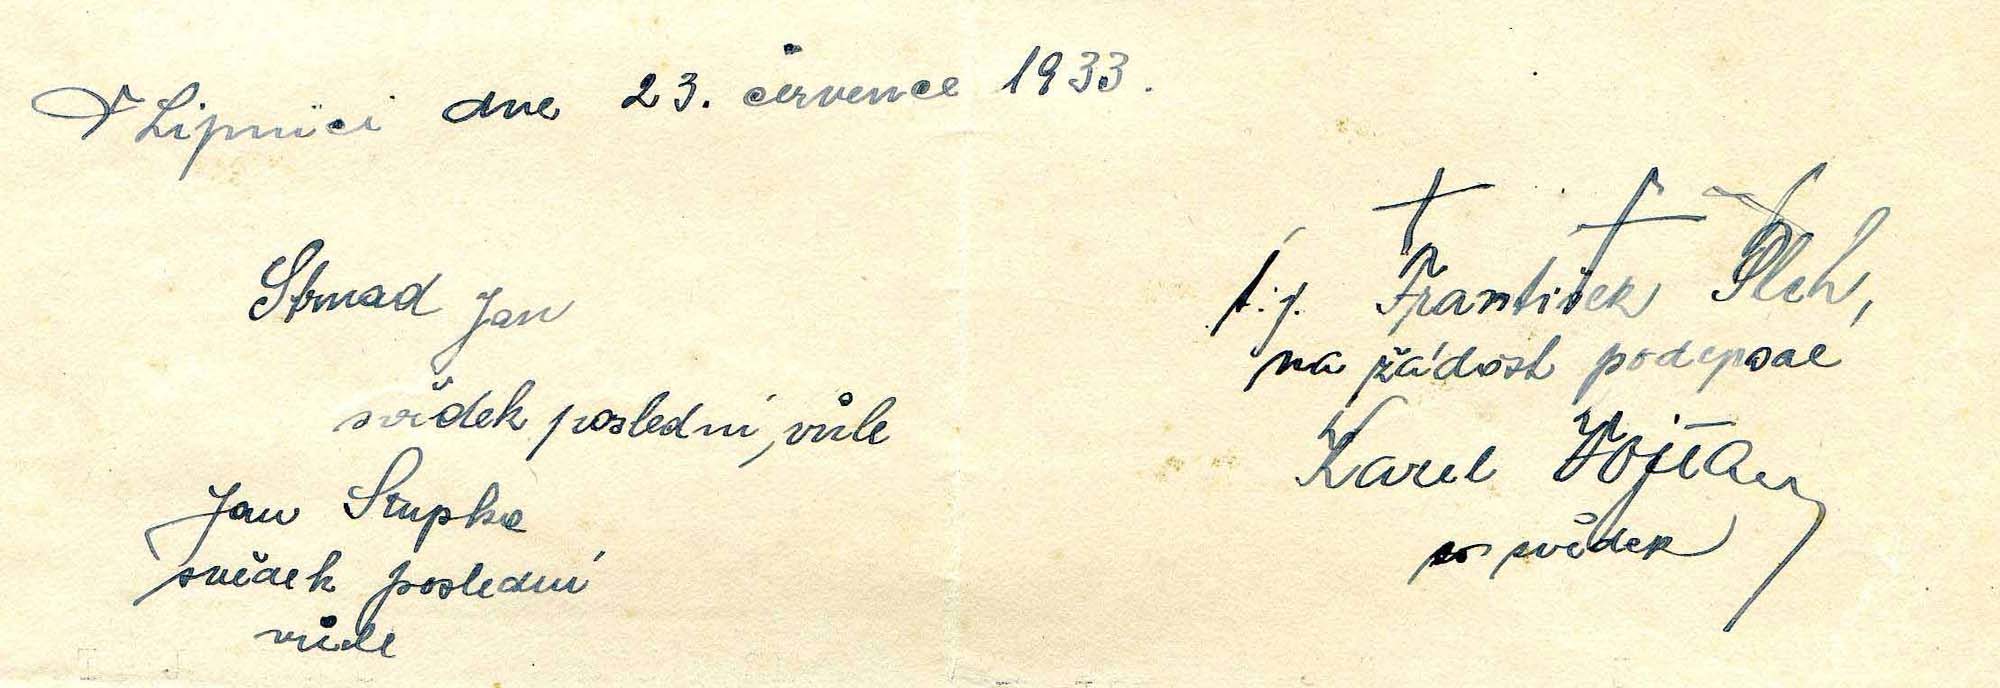 V Lipnici dne 23. července 1933.
Strnad Jan
svědek poslední vůle
Jan Stupka
svědek poslední
vůle
+ +
t.j. František Plch,
na žádost podepsal
Karel
svědek